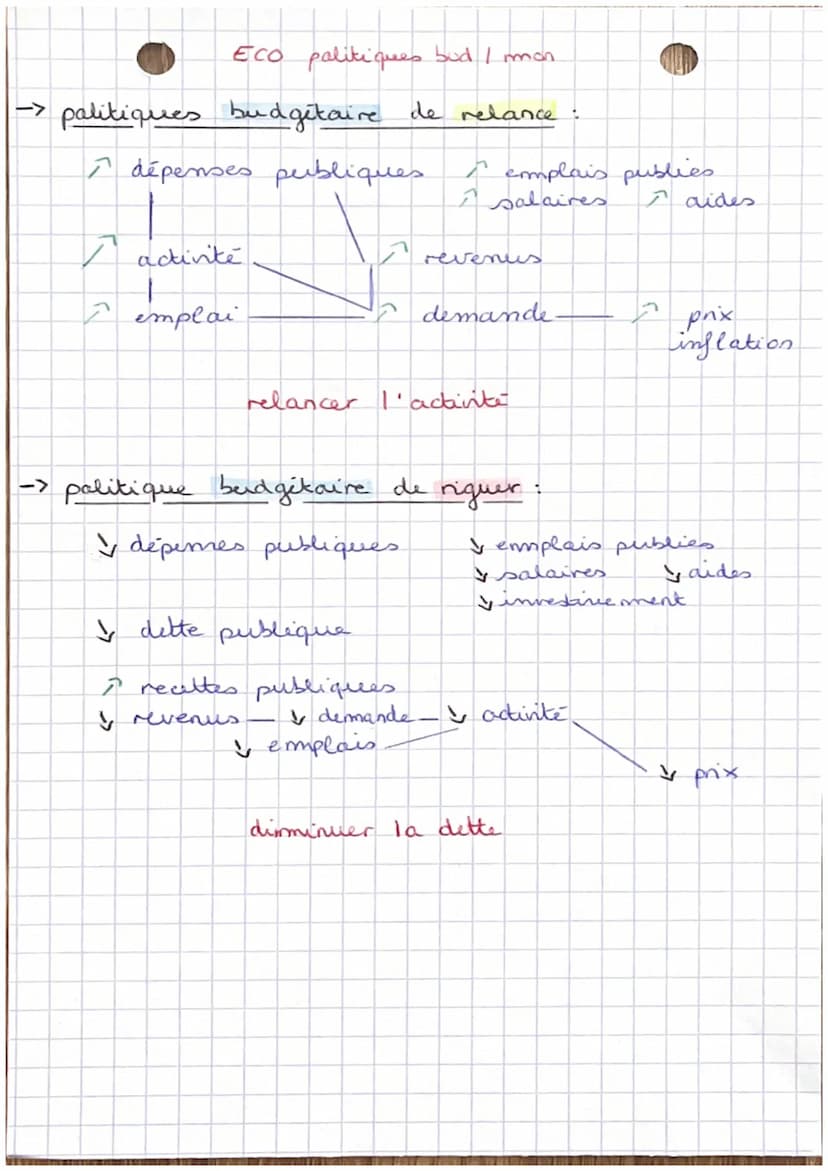 ECO politiques bud / mon
-> politiques budgétaire de relance :
↗ dépenses publiques ↗ emplois publics
↗ salaires ↗ aides
↗ activité ↗ revenus
↗ emploi ↗ demande ↗ prix
inflation
relancer l'activité
-> politique budgétaire de riguer :
↘ dépenses publiques ↘ emplois publics
↘ salaires ↘ aides
↘ investissement
↘ dette publique
↗ recettes publiques
↘ revenus — ↘ demande — ↘ activité
↘ emplois
↘ prix
diminuer la dette